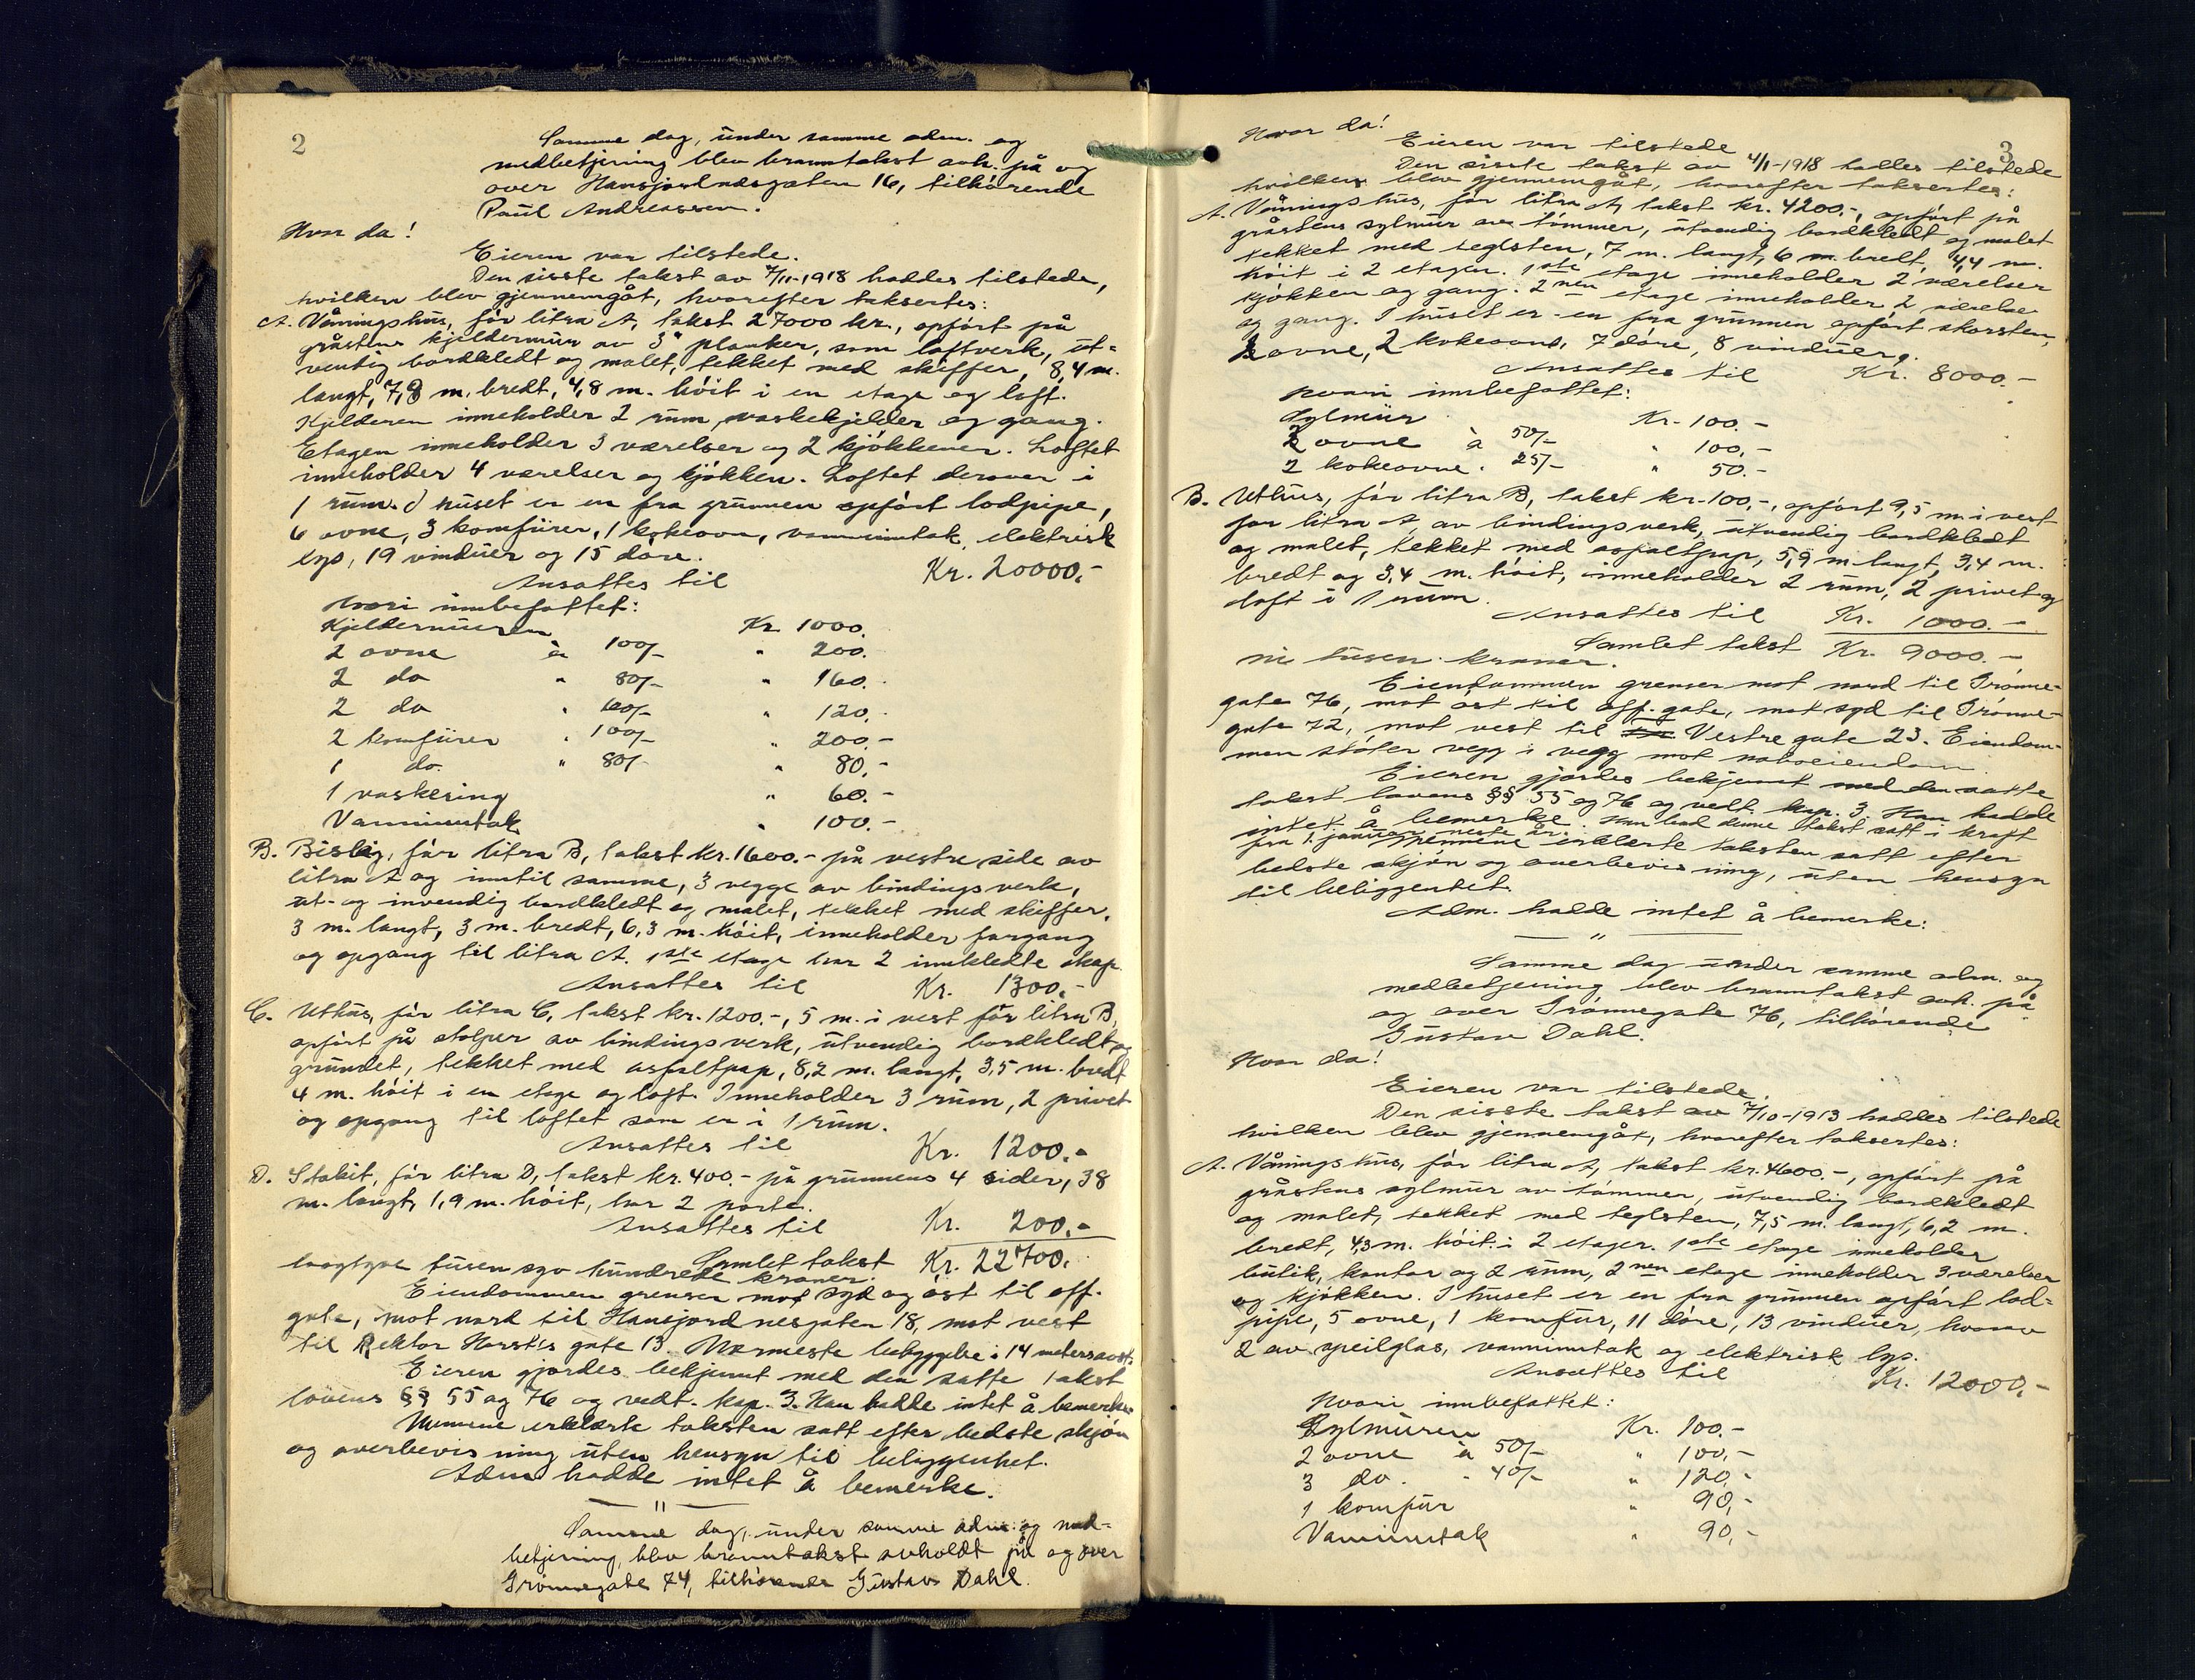 2
Samme dag, under samme adm. og
medbetjening blev branntakst avh. på og
over Hansjordnesgaten 16, tilhörende
Paul Andreassen.
Hvor da!
Eieren var tilstede.
Den sisste takst av 7/11-1918 haddes tilstede,
hvilken blev gjennemgåt, hvorefter taksertes:
A. Våningshus, för litra A, takst 27000 kr., opfört på
gråstens kjeldermur av 3" planker, som loftverk, ut-
vendig bordkledt og malet, tekket med skiffer, 8,4 m.
langt, 7,8 m. bredt, 4,8 m. höit i en etage og loft.
Kjelderen inneholder 2 rum, vaskekjelder og gang.
Etagen inneholder 3 værelser og 2 kjökkener. Loftet
inneholder 4 værelser og kjökken. Loftet derover i
1 rum. I huset er en fra grunnen opfört lodpipe,
6 ovne, 3 komfürer, 1 kokeovn, vanninntak, elektrisk
lys, 19 vinduer og 15 döre.
Ansattes til Kr. 20000,-
Hvori innbefattet:
Kjeldermuren Kr 1000.
2 ovne à 100/- " 200.
2 do " 80/- " 160.-
2 do " 60/- " 120.-
2 komfürer " 100/- " 200.-
1 do. " 80/- " 80,-
1 vaskering " 60.-
Vanninntak " 100.-
B. Bislag, för litra B, takst kr. 1600.- på vestre side av
litra A og inntil samme, 3 vegge av bindingsverk,
ut- og invendig bordkledt og malet, tekket med skiffer,
3 m. langt, 3 m. bredt, 6,3 m. höit, inneholder forgang
og opgang til litra A. 1ste etage har 2 innkledte skap.
Ansattes til Kr. 1300.-
C. Uthus, för litra C, takst kr. 1200.-, 5 m. i vest för litra B,
opfört på stolper av bindingsverk, utvendig bordkledt og
grundet, tekket med asfaltpap, 8,2 m. langt, 3,5 m. bredt
4 m. höit i en etage og loft. Inneholder 3 rum, 2 privet
og opgang til loftet som er i 1 rum.
Ansattes til Kr. 1200.-
D. Stakit, för litra D, takst kr. 400.- på grunnens 4 sider, 38
m. langt, 1,9 m. höit, har 2 porte.
Ansattes til Kr. 200.-
Samlet takst Kr. 22700.-
tvogtyve tusen syv hundrede kroner.
Eiendommen grenser mot syd og öst til off.
gate, mot nord til Hansjordnesgaten 18, mot vest
til Rektor Horsts gate 13. Nærmeste bebyggelse i 14 meters avst.
Eieren gjordes bekjennt med den satte takst
lovens §§ 55 og 76 og vedt. kap. 3. Han hadde intet å bemerke
Mennene erklærte taksten satt efter bedste skjön
og overbevisning uten hensyn til beliggenhet.
Adm. hadde intet å bemerke.
— " —
Samme dag, under samme adm. og med-
betjening, blev branntakst avholdt på og over
Grönnegate 74, tilhörende Gustav Dahl.
3
Hvor da!
Eieren var tilstede
Den sisste takst av 4/1-1918 haddes tilstede
hvilken blev gjennemgåt, hvorefter taksertes:
A. Våningshus, för litra A, takst kr. 4200.-, opfört på
gråstens sylmur av tömmer, utvendig bordkledt og malet
tekket med teglsten, 7 m. langt, 6 m. bredt, 4,4 m.
höit i 2 etager. 1ste etage inneholder 2 værelser
kjökken og gang. 2nen etage inneholder 2 værelse
og gang. I huset er en fra grunnen opfört skorsten,
2 ovne, 2 kokeovne, 7 döre, 8 vinduer.
Ansattes til Kr. 8000.-
Hvori innbefattet:
Sylmur Kr. 100.-
2 ovne à 50/- " 100,-
2 kokeovne " 25/- " 50.-
B. Uthus, för litra B, takst kr. 100,-, opfört 9,5 m. i vest
for litra A, av bindingsverk, utvendig bordkledt
og malet, tekket med asfaltpap, 5,9 m langt, 3,4 m.
bredt og 3,4 m. höit, inneholder 2 rum, 2 privet og
loft i 1 rum.
Ansattes til Kr. 1000.-
Samlet takst Kr. 9000.-
ni tusen kroner.
Eiendommen grenser mot nord til Grönne-
gate 76, mot öst til off. gate, mot syd til Grönne-
gate 72, mot vest til Vestregate 23. Eiendom-
men stöter vegg i vegg mot naboeiendom.
Eieren gjordes bekjennt med den satte
takst lovens §§ 55 og 76 og vedt. kap. 3. Han hadde
intet å bemerke. Han bad denne takst satt i kraft
fra 1. januar neste år. Mennene erklærte taksten satt efter
bedste skjön og overbevisning, uten hensyn
til beliggenhet.
Adm. hadde intet å bemerke:
— " —
Samme dag under samme adm. og
medbetjening blev branntakst avh. på
og over Grönnegate 76, tilhörende
Gustav Dahl.
Hvor da!
Eieren var tilstede.
Den sisste takst av 7/10-1913 haddes tilstede
hvilken blev gjennemgåt, hvorefter taksertes:
A. Våningshus, för litra A, takst kr. 4600.-, opfört på
gråstens sylmur av tömmer, utvendig bordkledt
og malet, tekket med teglsten, 7,5 m. langt, 6,2 m.
bredt, 4,3 m. höit i 2 etager. 1ste etage inneholder
butik, kontor og 2 rum, 2nen etage inneholder 3 værelser
og kjökken. I huset er en fra grunnen opfört lod-
pipe, 5 ovne, 1 komfur, 11 döre, 13 vinduer, hvorav
2 av speilglas, vanninntak og elektrisk lys.
Ansattes til Kr. 12000,-
Hvori innbefattet:
Sylmuren Kr. 100.-
2 ovne à 50/- " 100,-
3 do. " 40/- " 120,-
1 komfur " 90,-
Vanninntak " 90,-